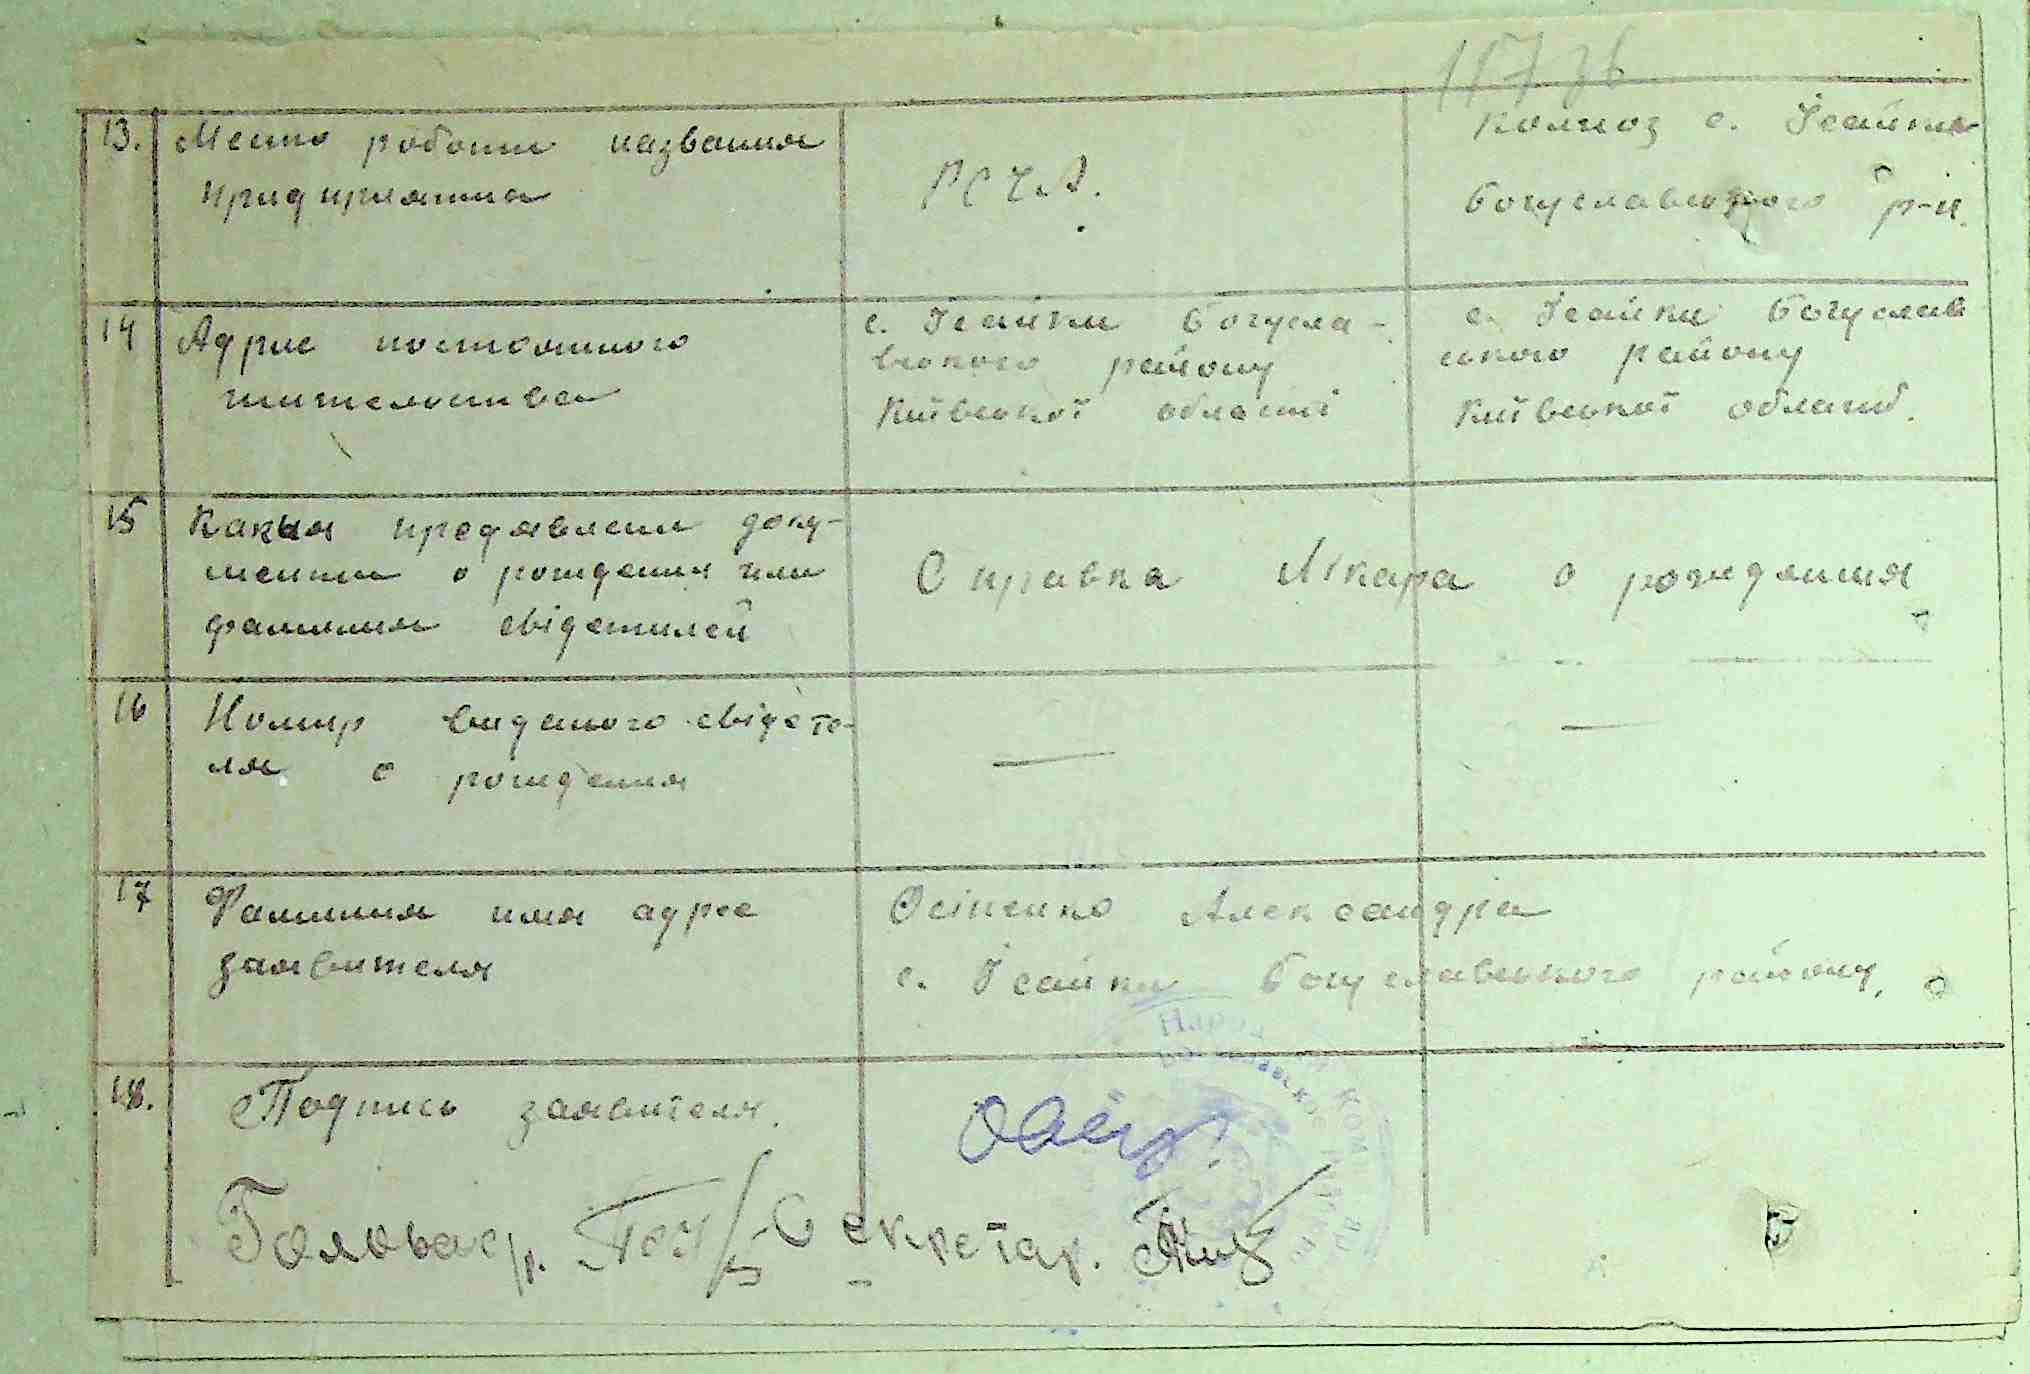 117 зв
13. Место роботи названия
придприятия
Р С Ч А.
Колхоз с. Ісайки
Богуславського р-н.
14 Адрис постоянного
жительства
с. Ісайки Богусла-
вського району
Київської області
с. Ісайки Богуслав
ського району
Київської області.
15 Какия предявлени доку-
менти о рождения или
фамилия свідетилей
Справка Лікара о рождения
16 Номир виданого свідете-
ля о рождения
— —
17 Фамилия имя адрес
заявителя
Осіпенко Александра
с. Ісайки Богуславського району,
18. Подпись заявителя.
Голова с/р. Секретар.